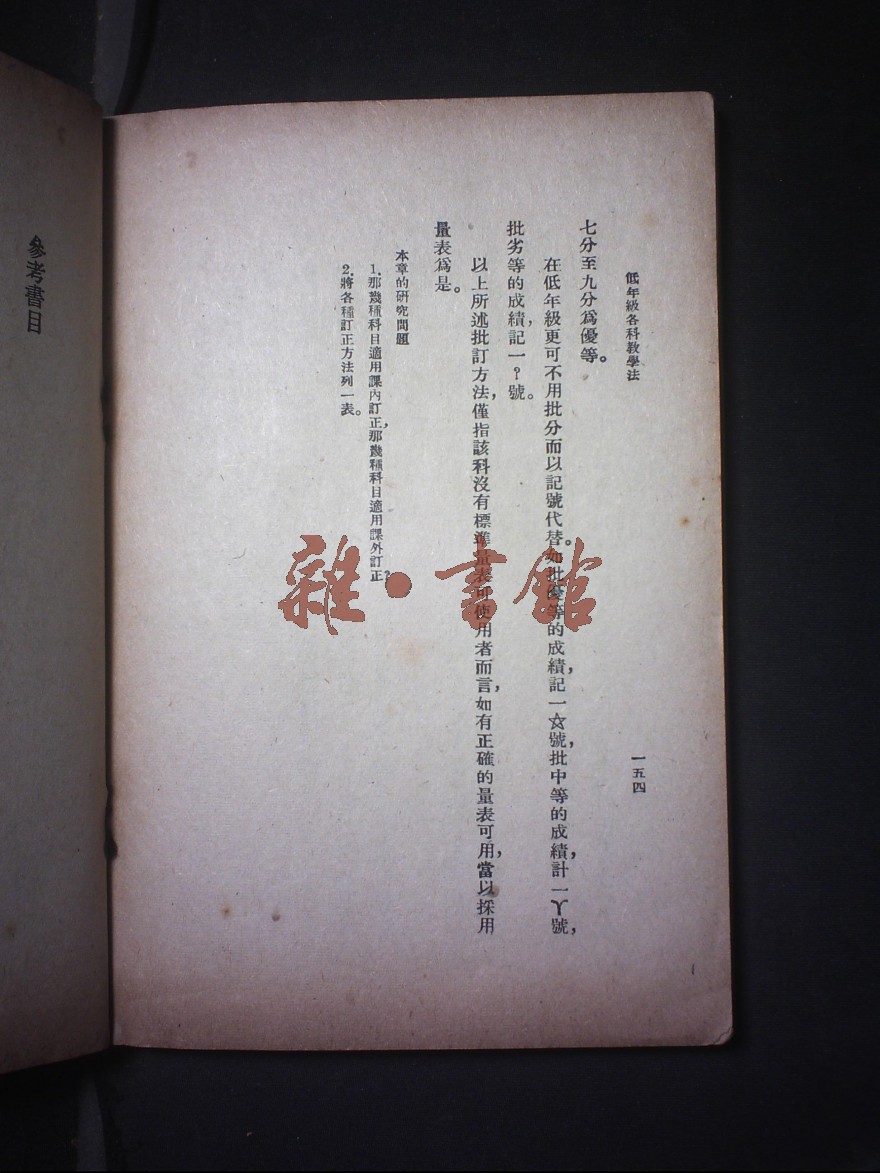 低年級各科教學法
一五四
七分至九分爲優等。
在低年級更可不用批分而以記號代替。如批優等的成績，記一☆號，批中等的成績，計一丫號，
批劣等的成績，記一？號。
以上所述批訂方法，僅指該科沒有標準量表可使用者而言，如有正確的量表可用，當以採用
量表爲是。
本章的研究問題
1.那幾種科目適用課內訂正，那幾種科目適用課外訂正？
2.將各種訂正方法列一表。
參考書目
雜·書館